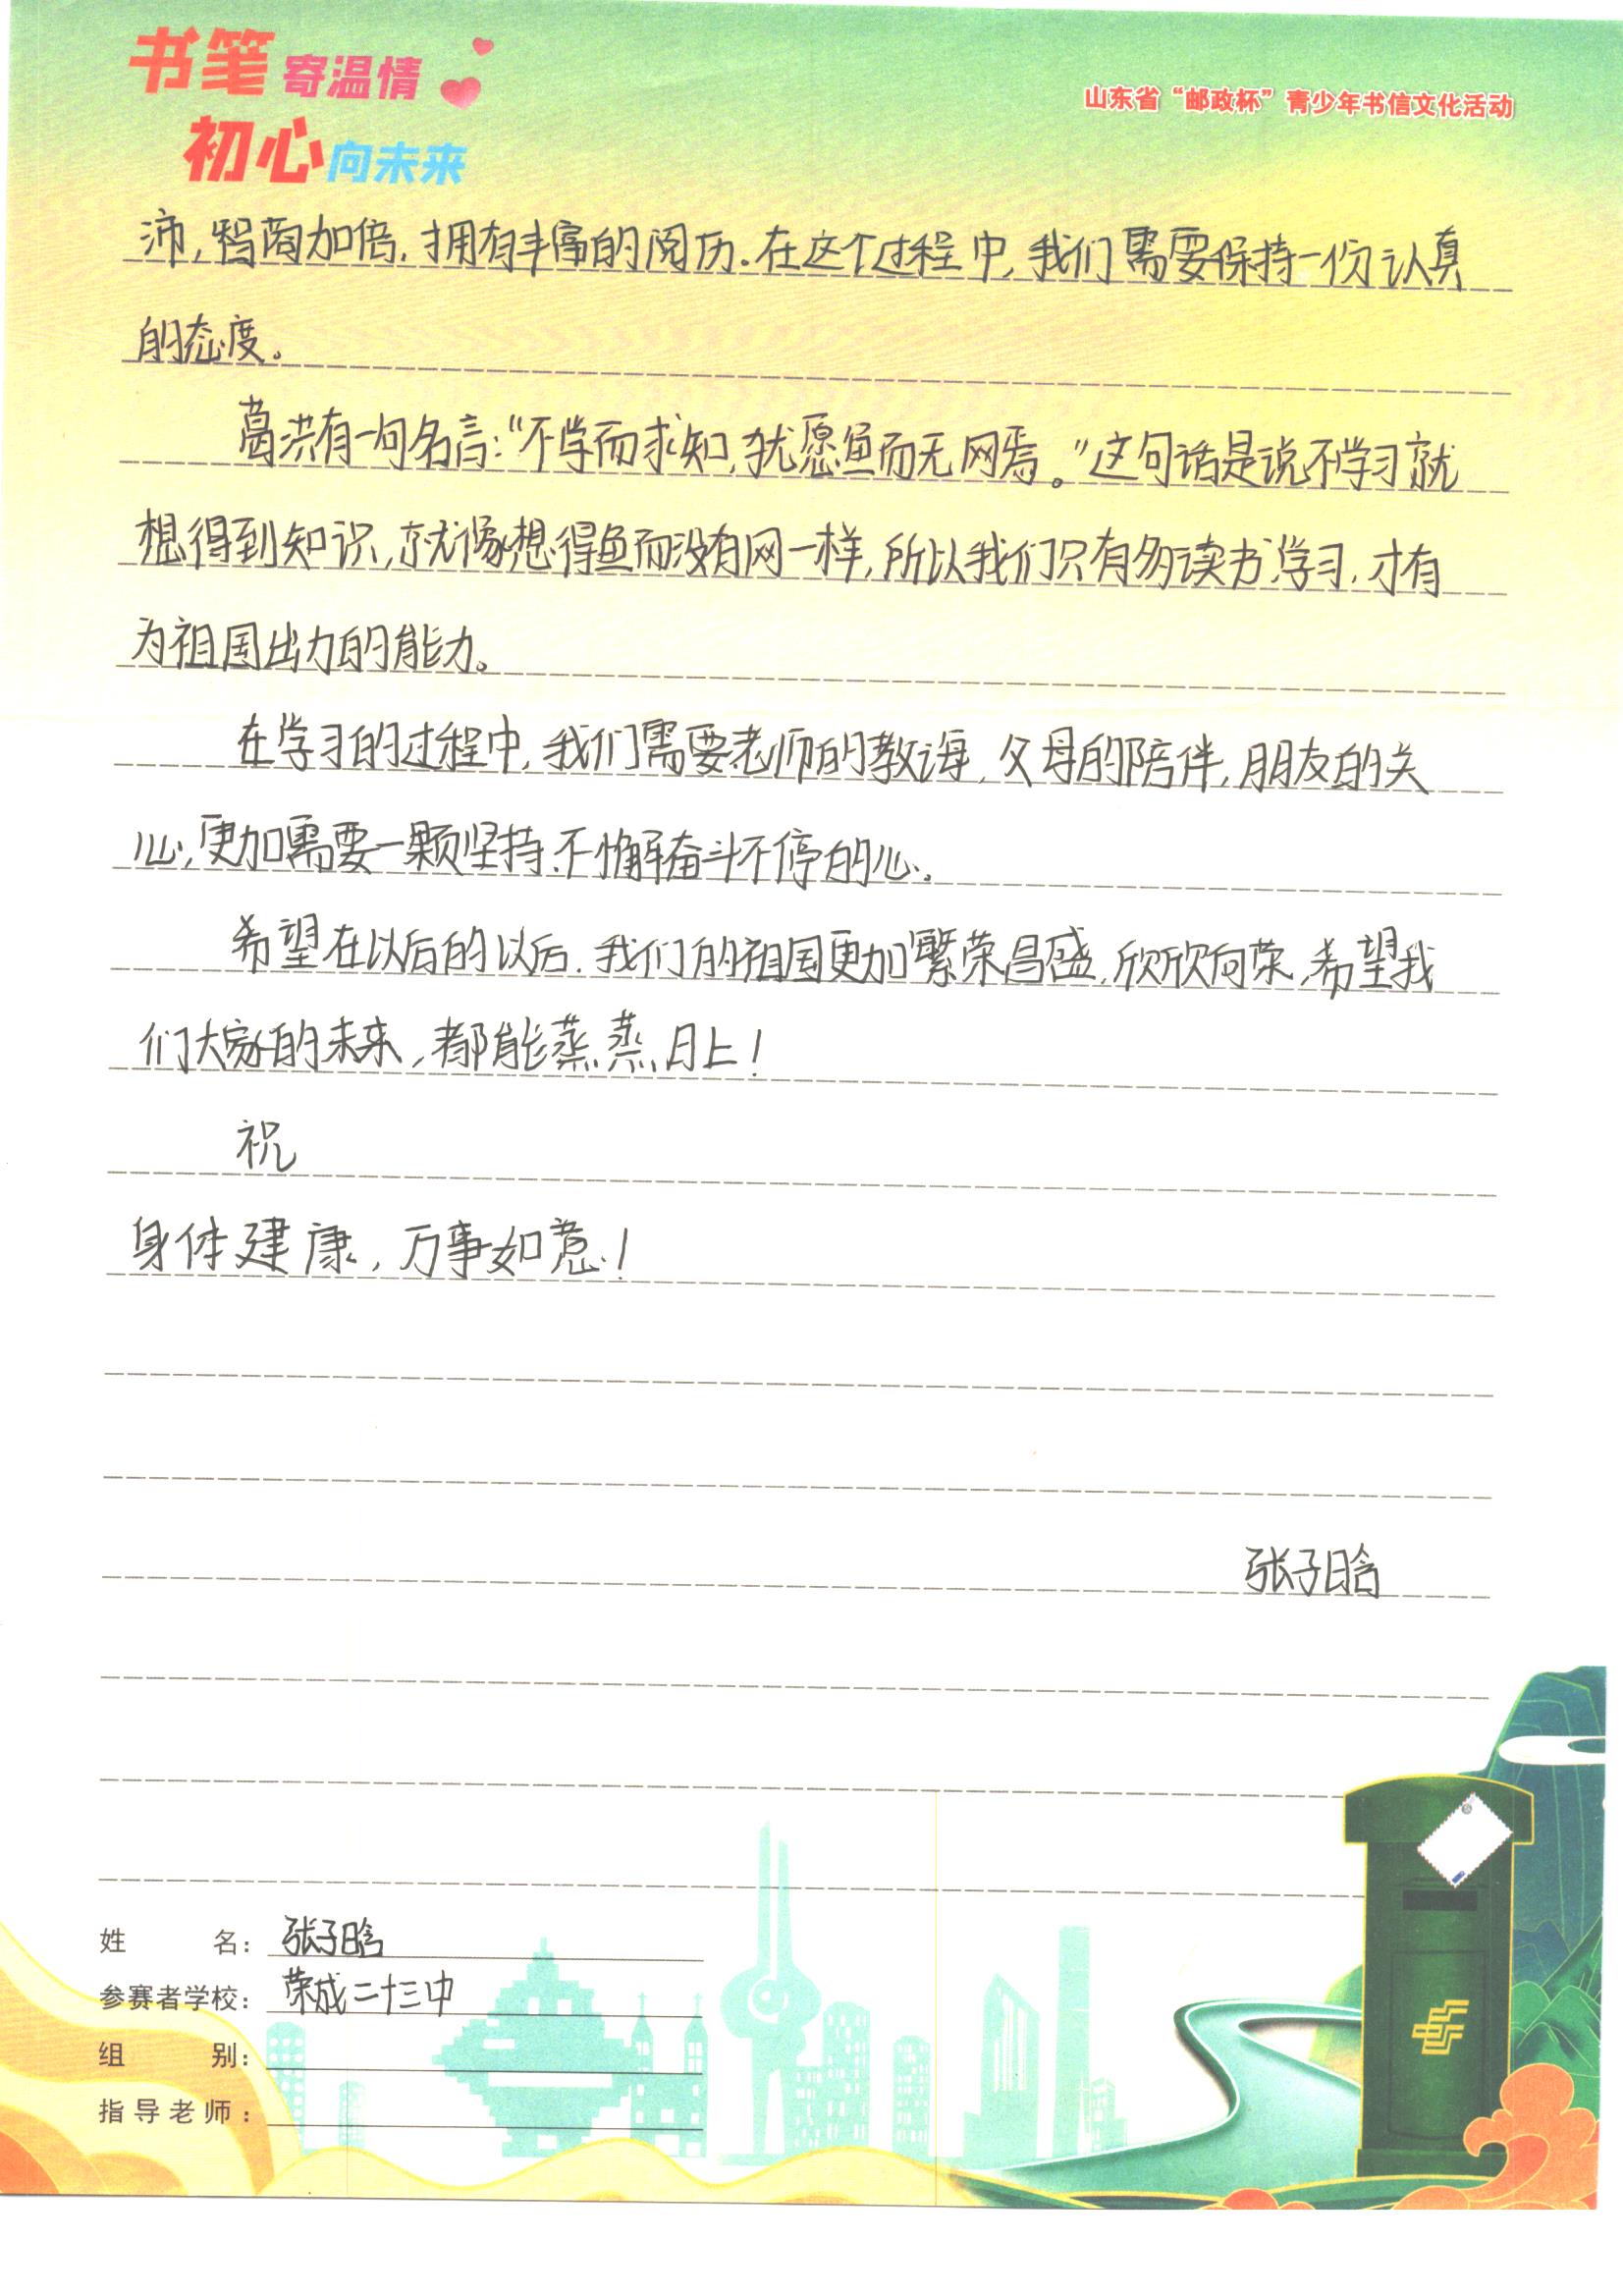 书笔寄温情
初心向未来
山东省“邮政杯”青少年书信文化活动
沛,智商加倍,拥有丰富的阅历.在这个过程中,我们需要保持一份认真
的态度。
葛洪有一句名言:“不学而求知,犹愿鱼而无网焉。”这句话是说不学习就
想得到知识,就像想得鱼而没有网一样,所以我们只有多读书,学习,才有
为祖国出力的能力。
在学习的过程中,我们需要老师的教诲,父母的陪伴,朋友的关
心,更加需要一颗坚持、不懈奋斗不停的心。
希望在以后的以后,我们的祖国更加繁荣昌盛,欣欣向荣,希望我
们大家的未来,都能蒸蒸日上!
祝
身体建康,万事如意!
张子晗
姓名:张子晗
参赛者学校:荣成二十三中
组别:
指导老师: